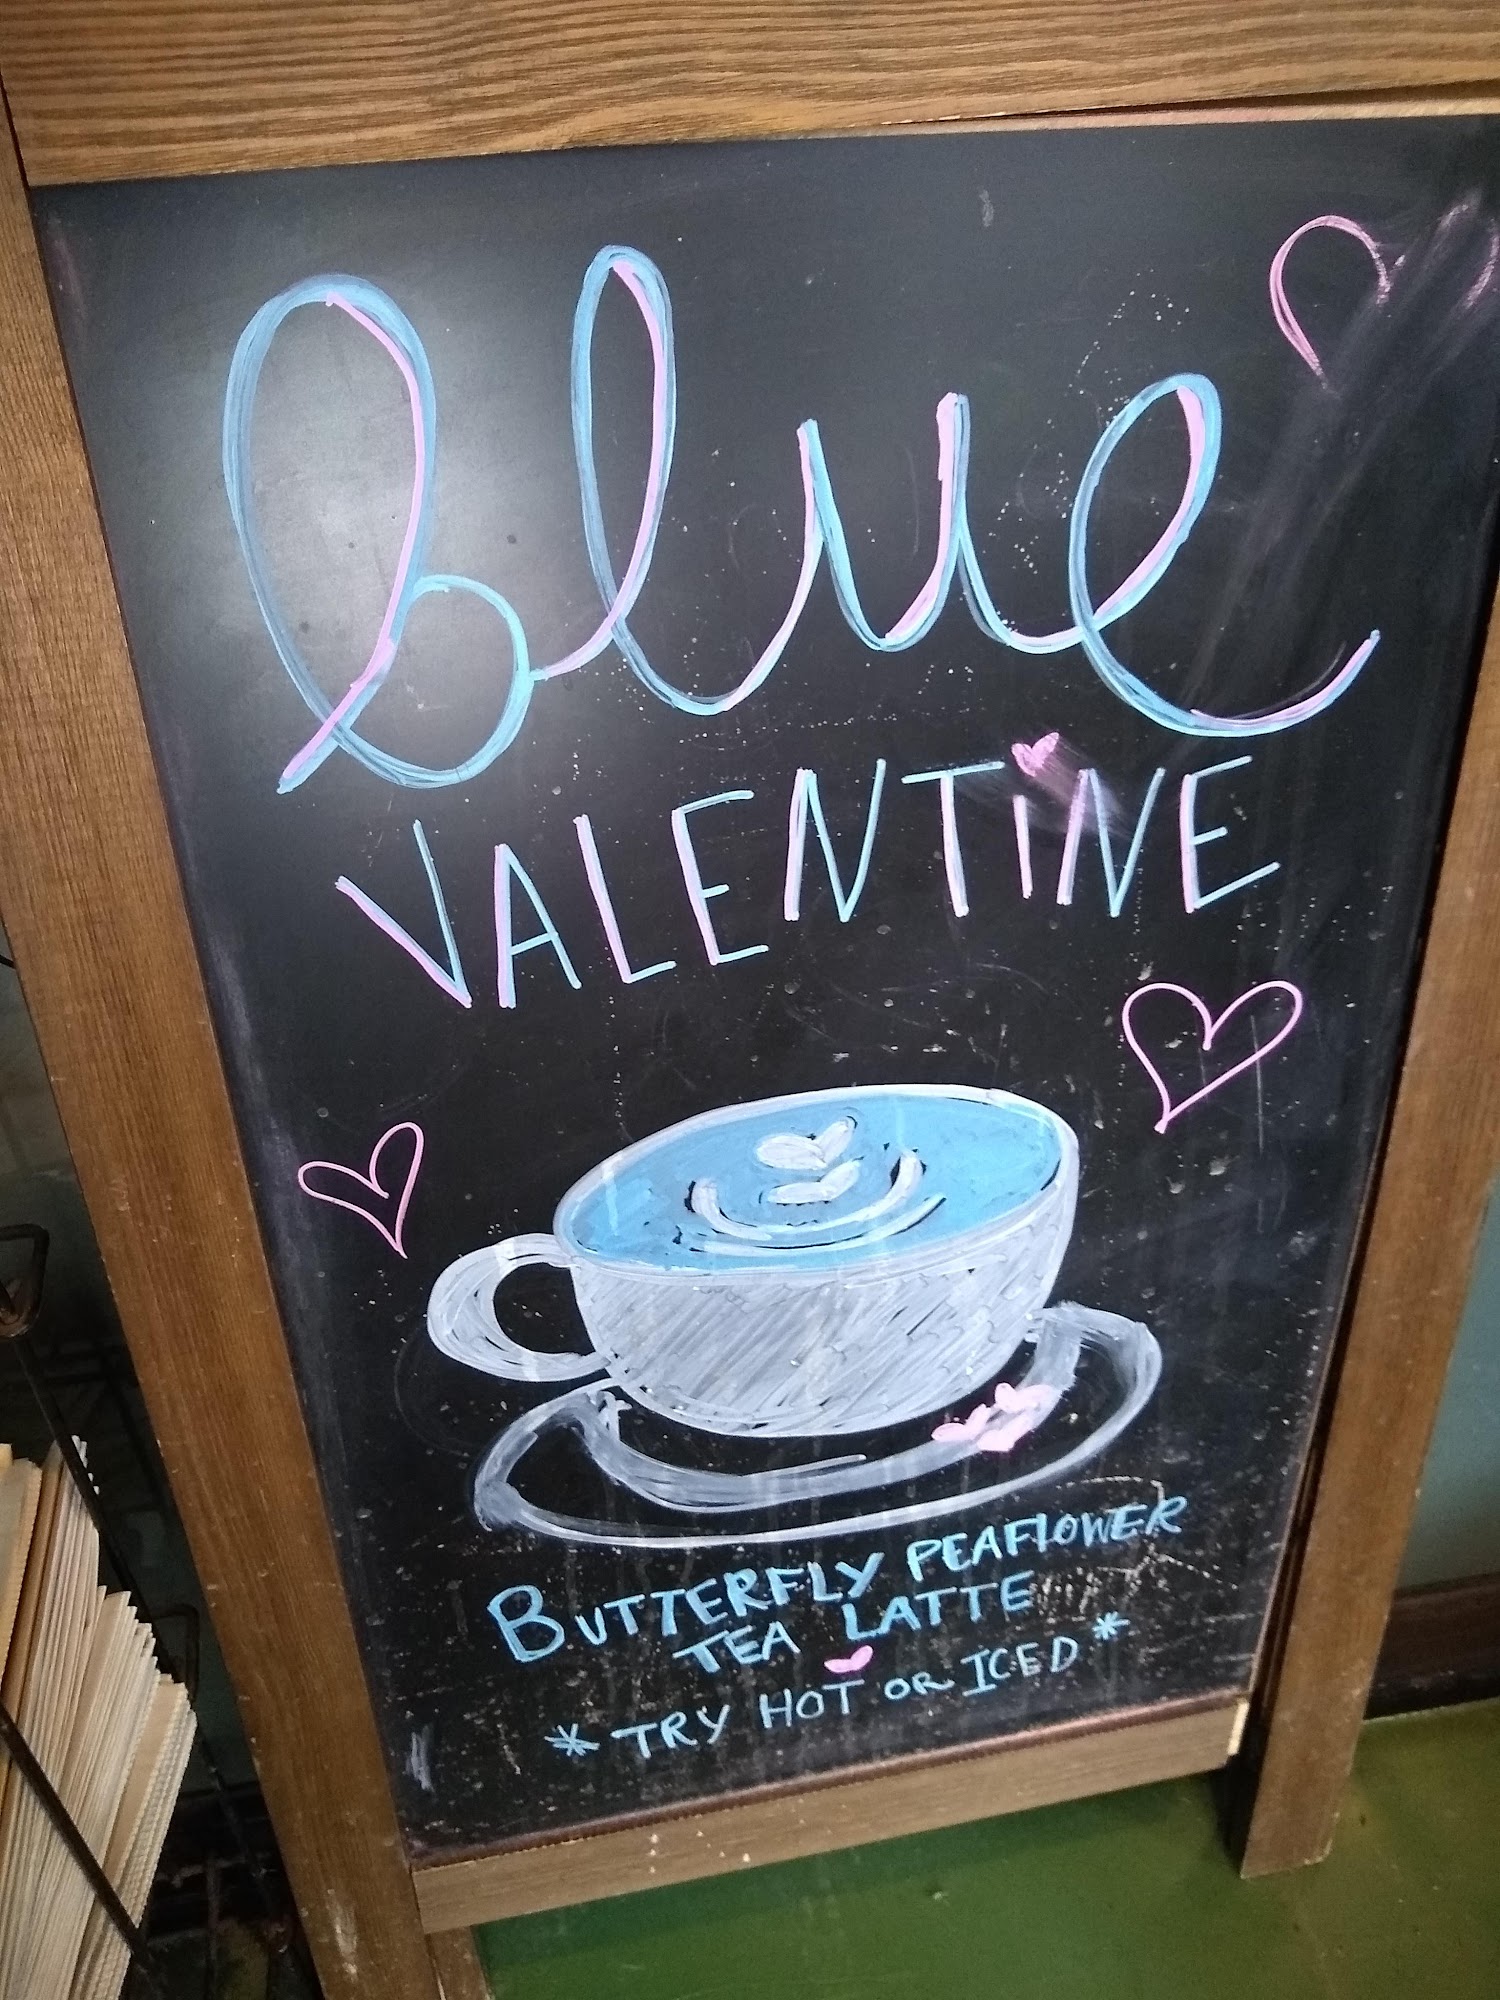 blue
VALENTiNE
BUTTERFLY PEAFlOWER
TEA LATTE
*TRY HOT OR ICED*